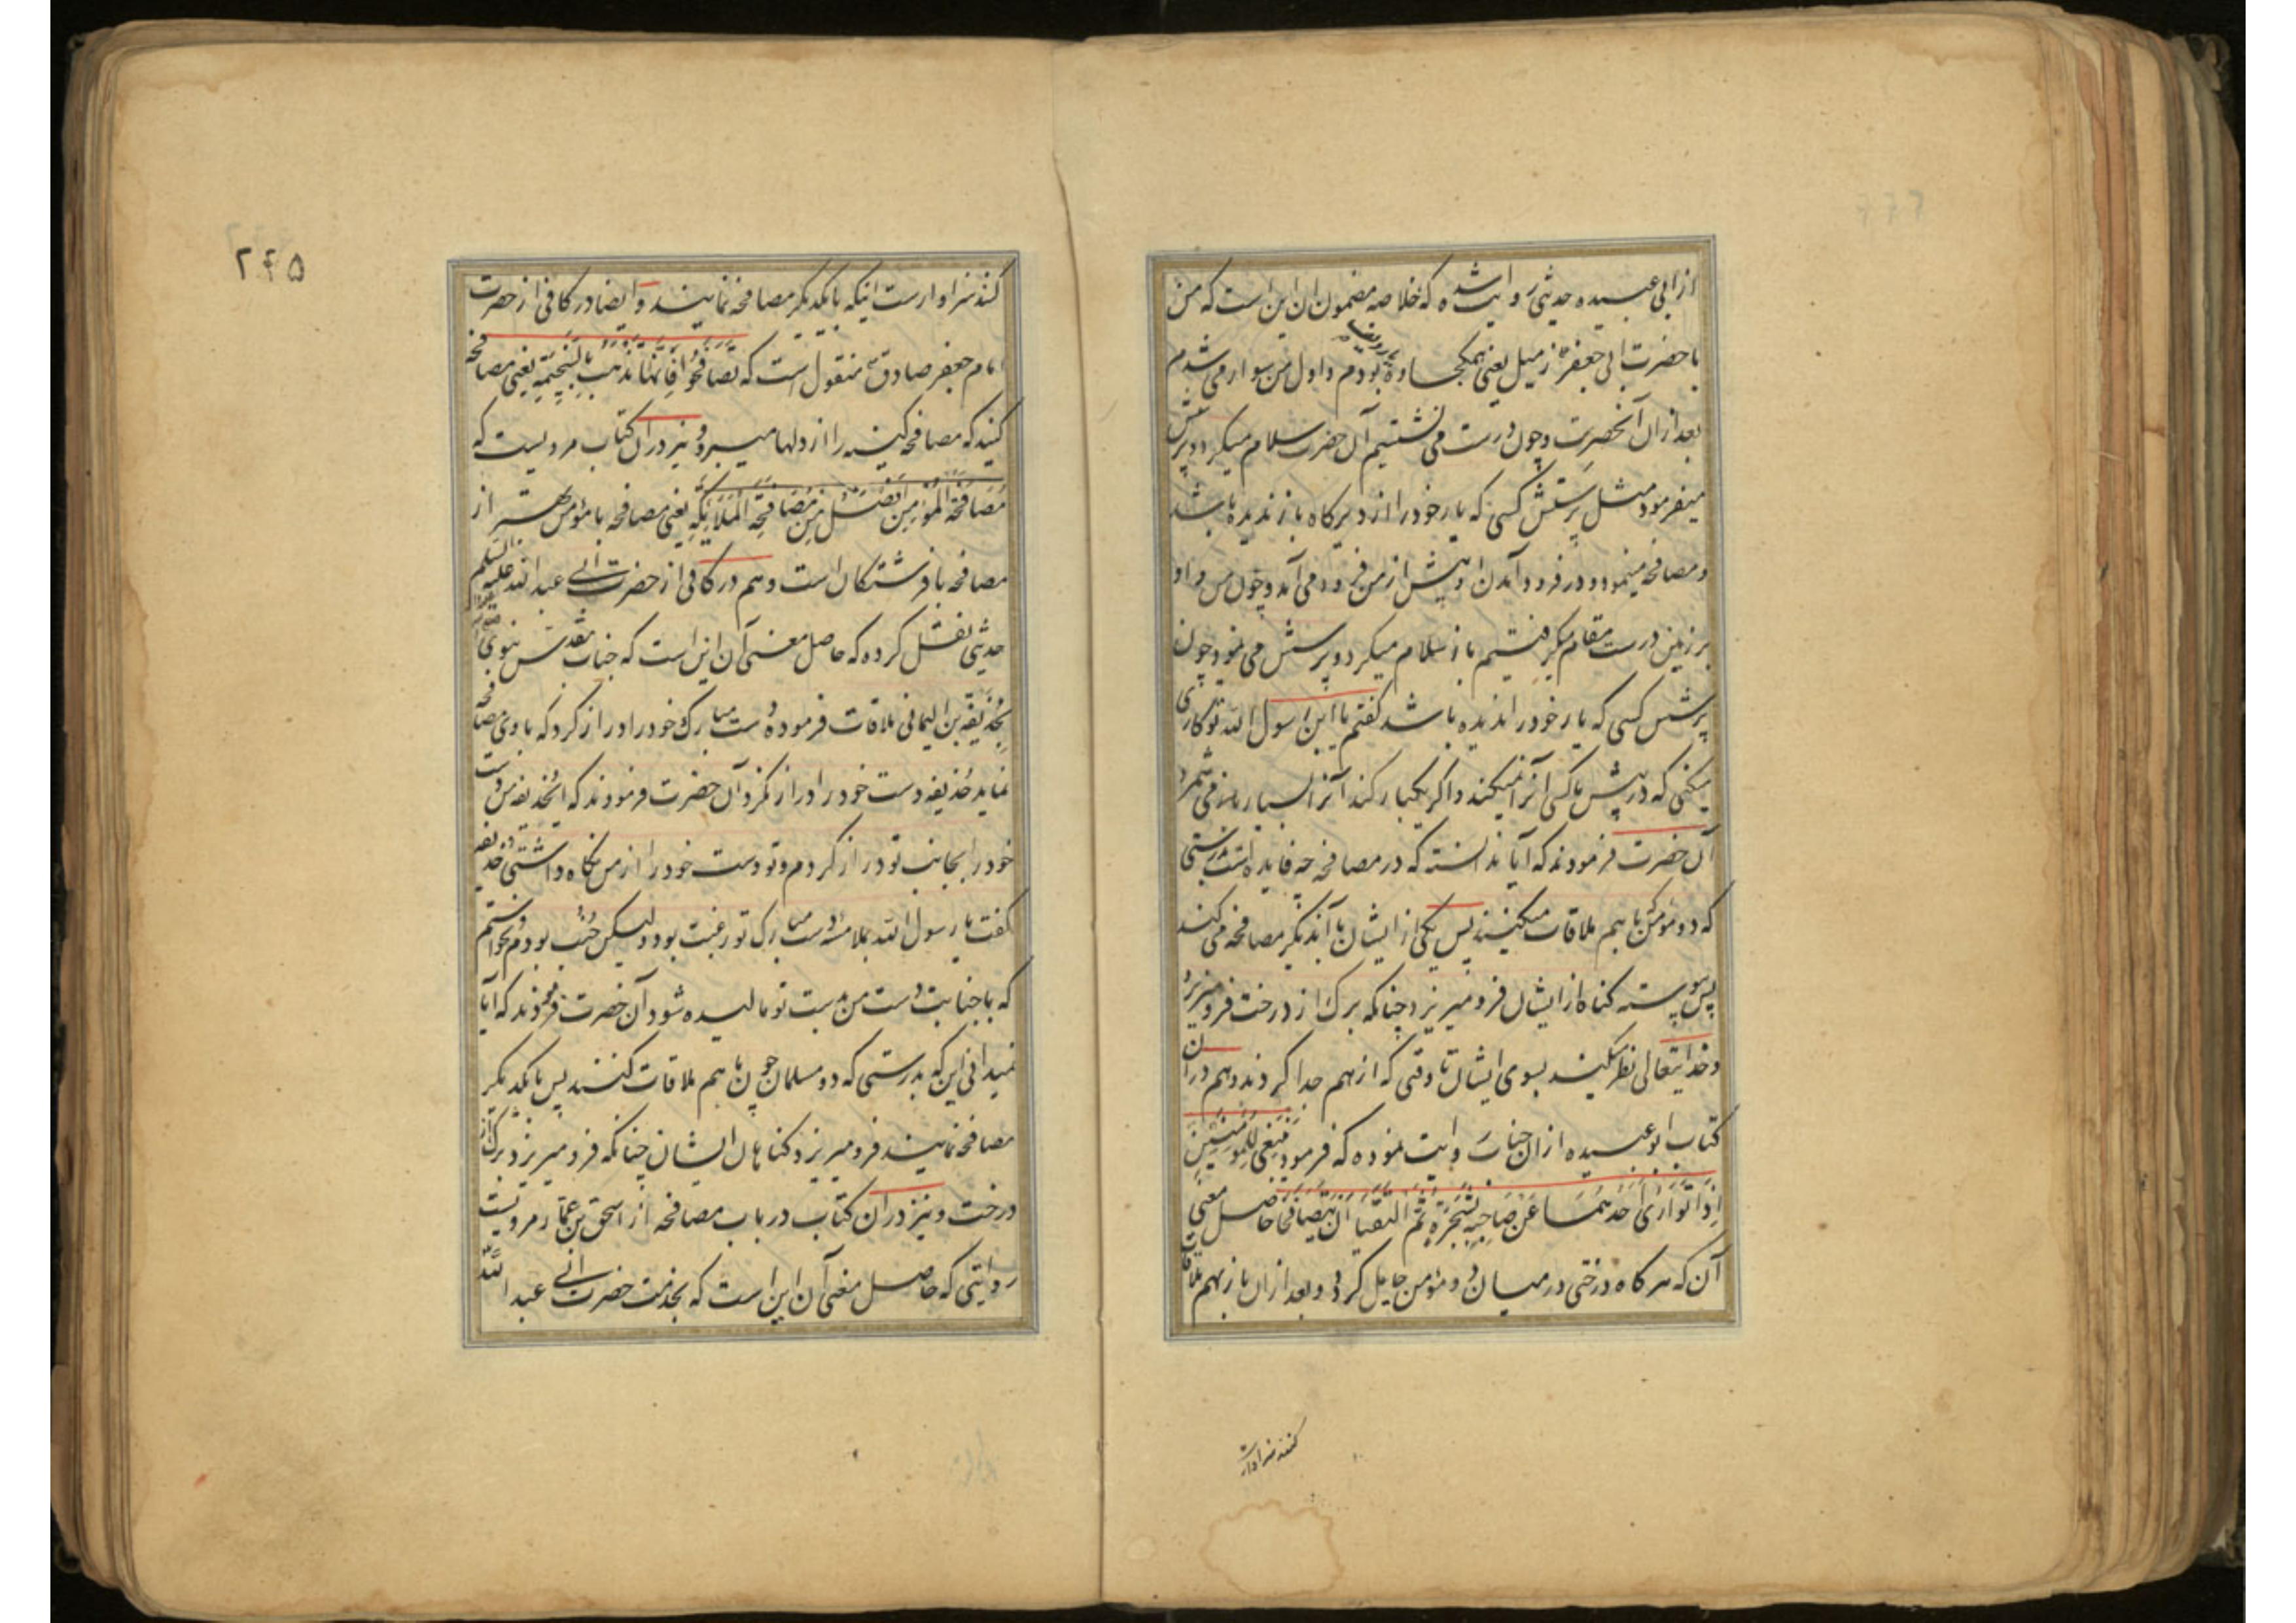 از ابی عبیده حدیثی روایت شده که خلاصه مضمون ان این است که من
با حضرت ابی جعفر ع زمیل یعنی همکجاوه بودم و اول من سوار می شدم
بعد از ان آنحضرت و چون درست می نشستیم آن حضرت سلام میکرد و پرسش
میفرمود مثل پرسش کسی که یار خود را از دیرکاه باز ندیده باشد
و مصافحه مینمود و در فرود آمدن او پیش از من فرود می آمد و چون من و او
بر زمین درست مقام میگرفتیم باز سلام میکرد و پرسش می نمود چون
پرسش کسی که یار خود را ندیده باشد گفتم یا ابن رسول الله تو کاری
میکنی که در پیش ما کسی آنرا نمیکند و اگر یکبار کند آنرا بسیار باز می شمرد
آن حضرت فرمودند که آیا ندانسته که در مصافحه چه فایده است بدرستی
که دو مؤمن با هم ملاقات میکنند پس یکی از ایشان با آندیگر مصافحه می کند
پس پیوسته گناه از ایشان فرو میریزد چنانکه برک از درخت فرو میریزد
و خدایتعالی نظر میکند بسوی ایشان تا وقتی که از هم جدا گردند و هم در ان
کتاب ابو عبیده از ان جناب روایت نموده که فرمود ینبغی للمؤمنین
اذا تواری احدهما عن صاحبه بشجرة ثم التقیا ان یتصافحا حاصل معنی
آن که هر گاه درختی در میان دو مؤمن حایل گردد و بعد از ان باز بهم ملاقات
کنند سزاوار
۲۴۵
کنند سزاوار است اینکه با یکدیگر مصافحه نمایند و ایضا در کافی از حضرت
امام جعفر صادق ع منقول است که تصافحوا فانها تذهب بالسخیمة یعنی مصافحه
کنید که مصافحه کینه را از دلها میبرد و نیز در ان کتاب مرویست که
مصافحة المؤمن افضل من مصافحة الملائکة یعنی مصافحه با مؤمن بهتر از
مصافحه با فرشتگان است و هم در کافی از حضرت ابی عبد الله علیه السلم
حدیثی نقل کرده که حاصل معنی آن این است که جناب مقدس نبوی
بحذیفه بن الیمانی ملاقات فرموده دست مبارک خود را دراز کرد که با وی مصافحه
نماید حذیفه دست خود را دراز نکرد آن حضرت فرمودند که ایحذیفه من دست
خود را بجانب تو دراز کردم و تو دست خود را از من نگاه داشتی حذیفه
گفت یا رسول الله بملامسه دست مبارک تو رغبت بود ولیکن جنب بودم و نخواستم
که با جنابت دست من بدست تو مالیده شود آن حضرت فرمودند که آیا
نمیدانی این که بدرستی که دو مسلمان چون با هم ملاقات کنند پس با یکدیگر
مصافحه نمایند فرو میریزد گناهان ایشان چنانکه فرو میریزد برک از
درخت و نیز در ان کتاب در باب مصافحه از اسحق بن عمار مرویست
روایتی که حاصل معنی آن این است که بخدمت حضرت ابی عبد الله